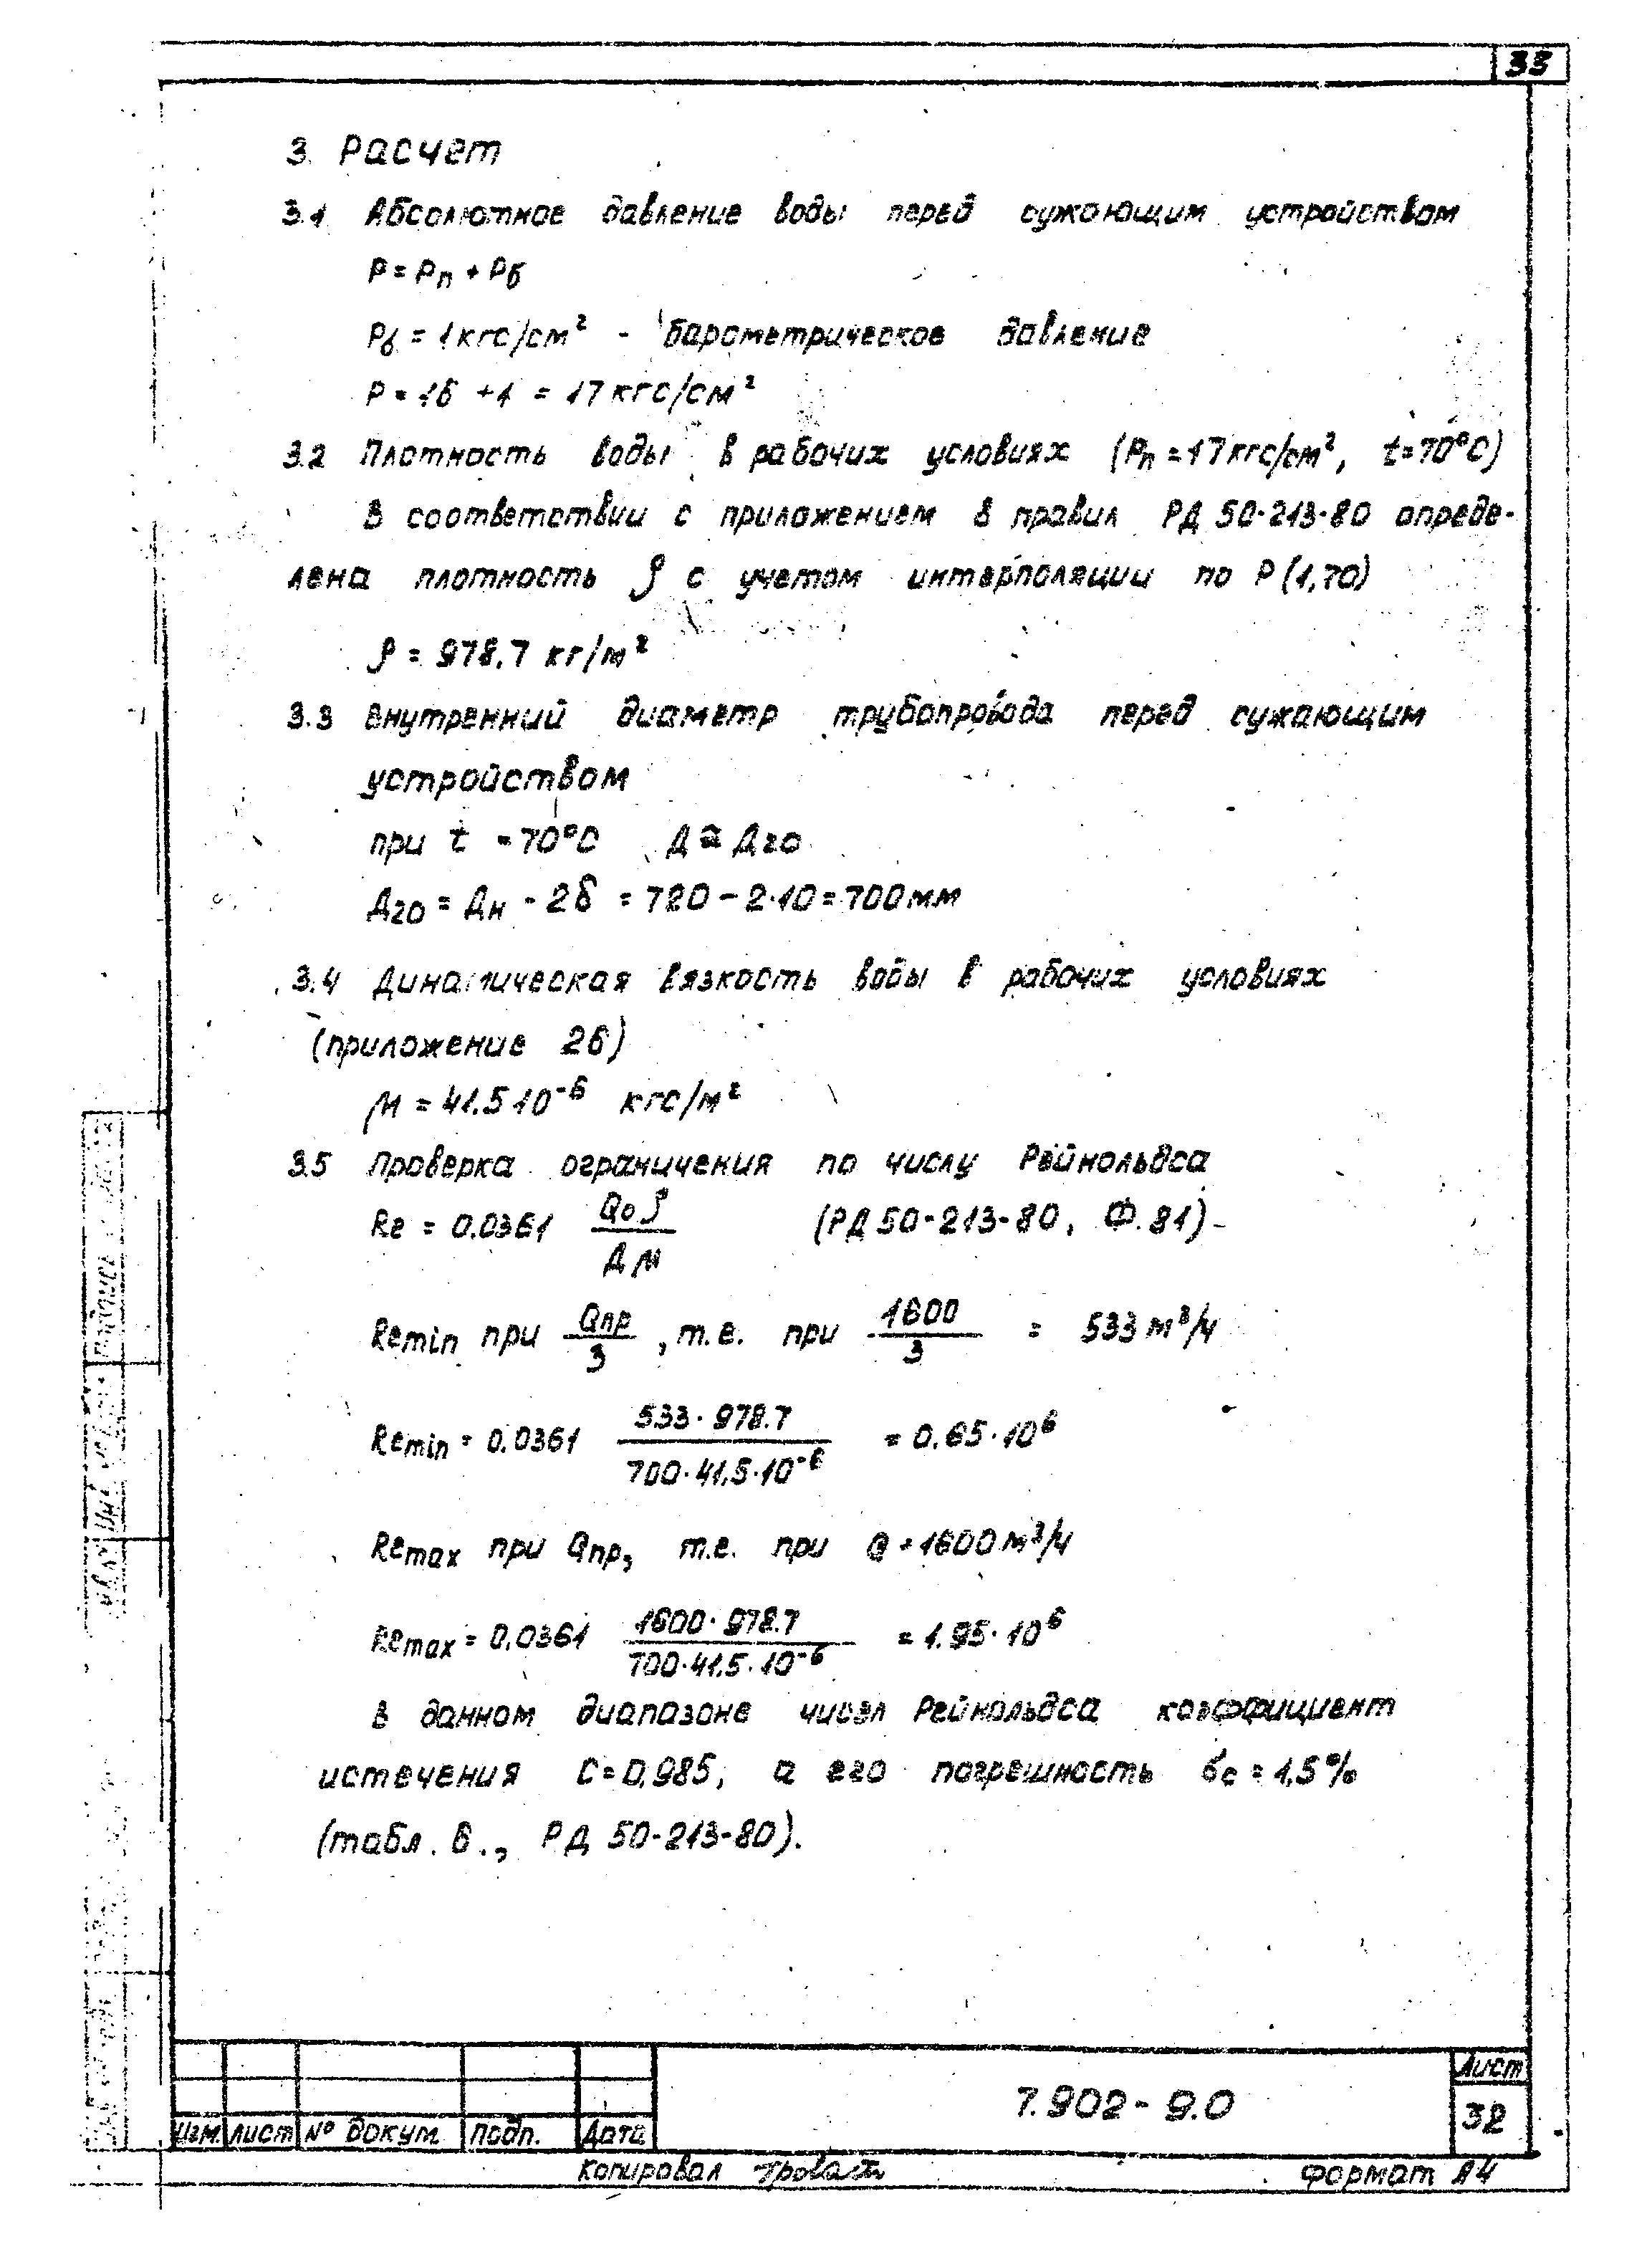 33
3. Расчет
3.1 Абсолютное давление воды перед сужающим устройством
P = Pп + Pб
Pб = 1 кгс/см² - барометрическое давление
P = 16 + 1 = 17 кгс/см²
3.2 Плотность воды в рабочих условиях (Pп = 17 кгс/см², t = 70°C)
В соответствии с приложением 8 правил РД 50-213-80 опреде-
лена плотность ρ с учетом интерполяции по P (1,70)
ρ = 978.7 кг/м²
3.3 Внутренний диаметр трубопровода перед сужающим
устройством
при t = 70°C Д ≅ Д20
Д20 = Дн - 2δ = 720 - 2·10 = 700 мм
3.4 Динамическая вязкость воды в рабочих условиях
(приложение 26)
μ = 41.5 10⁻⁶ кгс/м²
3.5 Проверка ограничения по числу Рейнольдса
Re = 0.0361 Qо ρ / Д μ (РД 50-213-80, Ф. 81)
Remin при Qпр / 3, т.е. при 1600 / 3 = 533 м³/ч
Remin = 0.0361 533 · 978.7 / 700 · 41.5 · 10⁻⁶ = 0.65 · 10⁶
Remax при Qпр, т.е. при Q = 1600 м³/ч
Remax = 0.0361 1600 · 978.7 / 700 · 41.5 · 10⁻⁶ = 1.95 · 10⁶
В данном диапазоне чисел Рейнольдса коэффициент
истечения С = 0.985, а его погрешность σс = 1.5%
(табл. 6., РД 50-213-80).
7.902-9.0
Лист
32
Изм. Лист № докум. Подп. Дата
Копировал
Формат А4